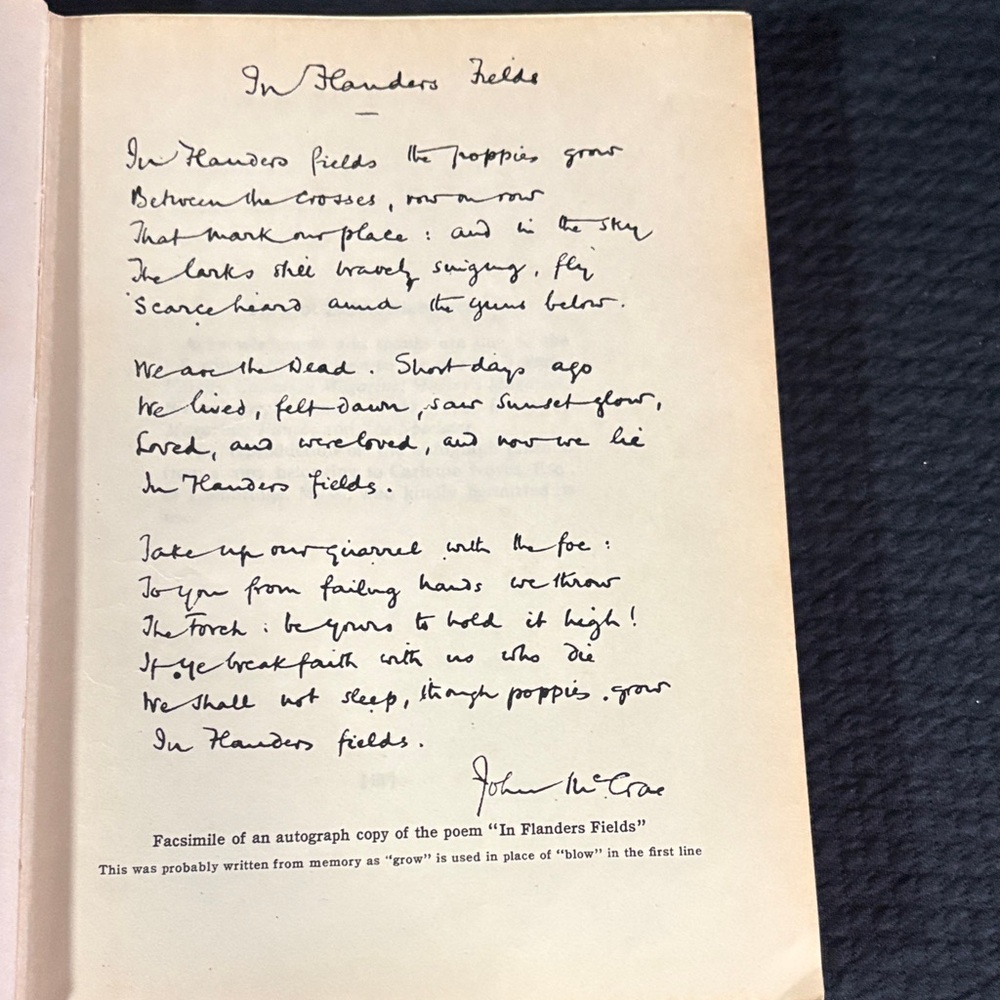 In Flanders Fields
In Flanders fields the poppies grow
Between the crosses, row on row
That mark our place : and in the sky
The larks still bravely singing, fly
Scarce heard amid the guns below.
We are the Dead. Short days ago
We lived, felt dawn, saw sunset glow,
Loved, and were loved, and now we lie
In Flanders fields.
Take up our quarrel with the foe :
To you from failing hands we throw
The Torch : be yours to hold it high!
If ye break faith with us who die
We shall not sleep, though poppies grow
In Flanders fields.
John McCrae
Facsimile of an autograph copy of the poem "In Flanders Fields"
This was probably written from memory as "grow" is used in place of "blow" in the first line